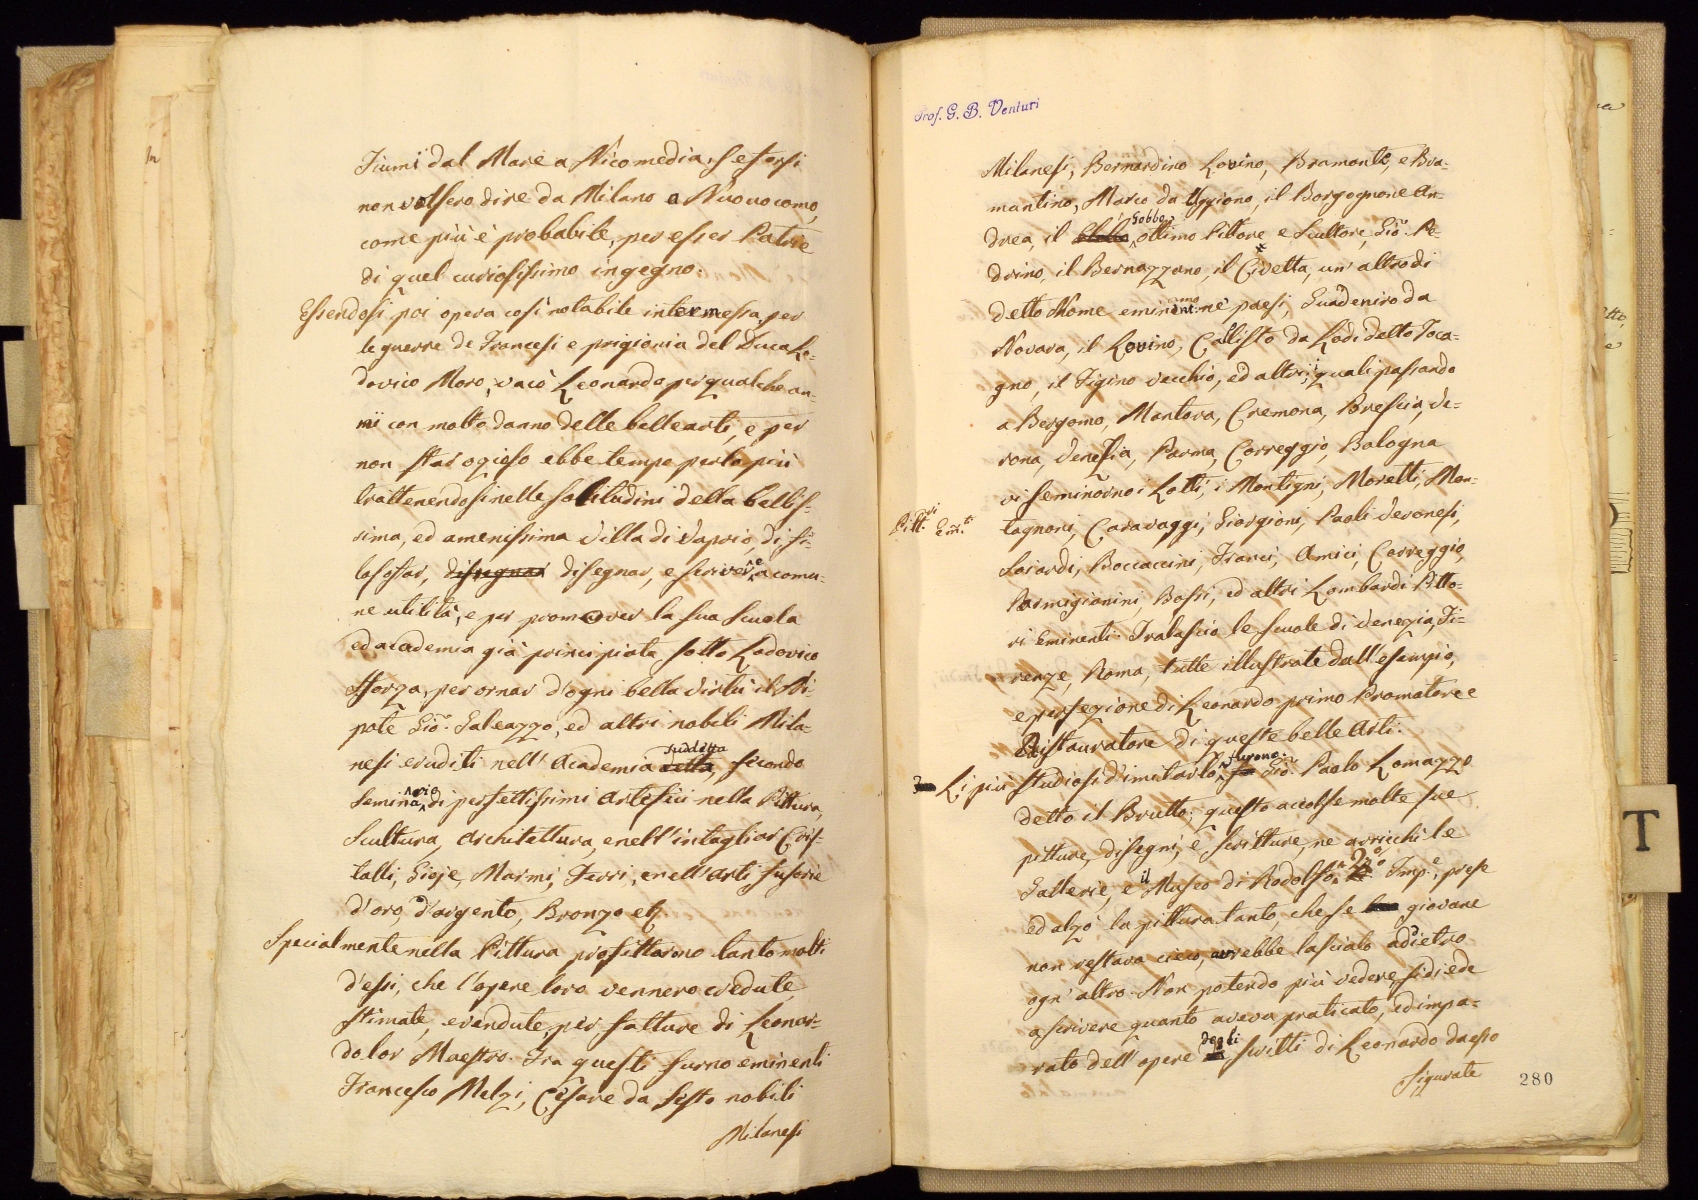 Fiumi dal Mare a Nicomedia, se forsi
non volsero dire da Milano a Nuovocomo,
come più è probabile, per esser Patrie
di quel curiosissimo ingegno.
Essendosi poi opera così notabile intermessa, per
le guerre de Francesi e prigionia del Duca Lo-
dovico Moro, vacò Leonardo per qualche an-
ni con molto danno delle belle arti, e per
non star ozioso ebbe tempo per lo più
trattenendosi nelle solitudini della bellis-
sima, ed amenissima Villa di Vaprio, di fi-
losofar, disegnar disegnar, e scriver a comu-
ne utilità, e per promover la sua Scuola
ed academia già principiata sotto Lodovico
Sforza, per ornar d'ogni bella Virtù il Ni-
pote Gio. Galeazzo, ed altri nobili Mila-
nesi eruditi nell'Academia detta, suddetta secondo
Seminario di perfettissimi Artefici nella Pittura,
Scultura, Architettura, e nell'intagliar Cris-
talli, Gioje, Marmi, Ferri, e nell'arti fusorie
d'oro, d'argento, Bronzo etc
Specialmente nella Pittura profittarono tanto molti
d'essi, che l'opere loro vennero credute,
stimate, e vendute per fatture di Leonar-
do lor Maestro. Fra questi furno eminenti
Francesco Melzi, Cesare da Sesto nobili
Milanesi
Prof. G. B. Venturi
Milanesi, Bernardino Lovino, Bramante, e Bra-
mantino, Marco da Uggiono, il Borgognone An-
drea, il Gobbo, ottimo Pittore e Scultore, Gio. Pe-
drino, il Bernazzano, il Civetta, un'altro di
detto Nome eminentmo ne' paesi, Guadeniro da
Novara, il Lovino, Callisto da Lodi detto Toca-
gno, il Figino vecchio, ed altri, quali passando
a Bergomo, Mantova, Cremona, Brescia, Ve-
rona, Venezia, Parma, Correggio, Bologna
vi seminorno i Lotti, i Montigni, Moretti, Mon-
Pitt.ri Em.ti
tagnoni, Caravaggi, Giorgioni, Paoli Veronesi,
Loiardi, Boccaccini, Franci, Amici, Correggio,
Parmigianini, Bossi, ed altri Lombardi Pitto-
ri Eminenti. Tralascio le scuole di Venezia, Fi-
renze, Roma, tutte illustrate dall'esempio,
e perfezione di Leonardo primo Promotore e
Ristauratore di queste belle Arti.
Li più studiosi d'imitarlo furono Gio. Paolo Lomazzo
detto il Brutto; questo accolse molte sue
pitture, disegni, e scritture, ne arricchì le
Gallerie, e il Museo di Rodolfo 2.o Imp.e, prese
ed alzò la pittura tanto, che se giovane
non restava cieco, avrebbe lasciato adietro
ogn'altro. Non potendo più vedere, si diede
a scrivere quanto aveva praticato, ed impa-
rato dell'opere degli scritti di Leonardo da esso
figurate
280
T